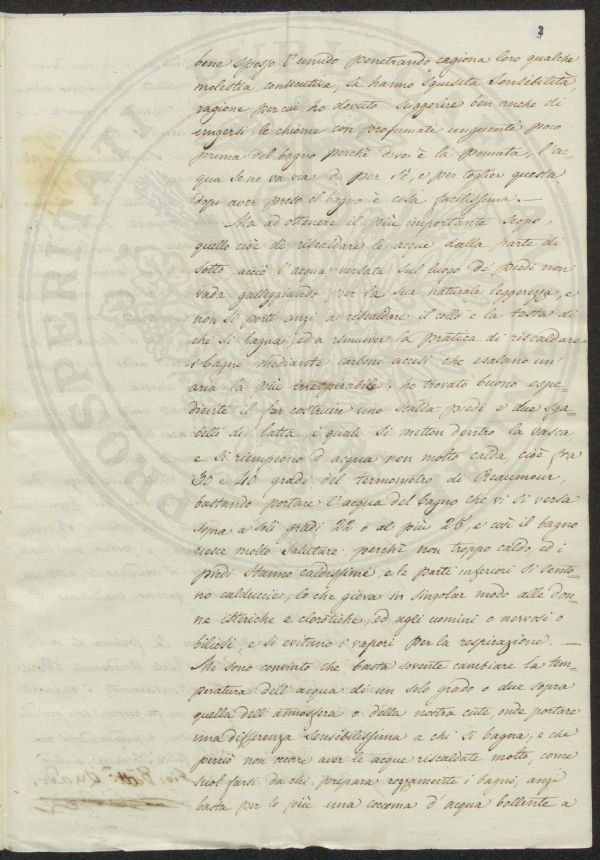 3
bene spesso l'umido penetrando cagiona loro qualche
molestia consecutiva, la hanno squisita sensibilità
ragione per cui ho dovuto suggerire ben anche di
ungersi le chiome con profumati unguenti poco
prima del bagno perchè dove è la pomata, l'ac-
qua se ne va via da per sè, e per toglier questa
dopo aver preso il bagno è cosa facilissima. —
Ma ad ottenere il più importante scopo,
quello cioè di riscaldare le acque dalla parte di
sotto acciò l'acqua versata sul luogo de' piedi non
vada galleggiando per la sua naturale leggerezza, e
non si porti anzi a riscaldare il collo e la testa di
chi si bagna, ed a rimuover la pratica di riscaldare
i bagni mediante carboni accesi che esalano un'
aria la più irrespirabile, ho trovato buono espe-
diente il far costruire uno scalda-piedi e due sga-
belli di latta, i quali si metton dentro la vasca
e si riempiono d'acqua non molto calda, cioè fra
30 e 40 gradi del termometro di Reaumeur,
bastando portare l'acqua del bagno che vi si versa
sopra a soli gradi 22 o al più 26, e così il bagno
riesce molto salutare, perchè non troppo caldo, ed i
piedi stanno caldissimi, e le parti inferiori si sento-
no calduccie, lo che giova in singolar modo alle don-
ne isteriche e clorotiche, ed agli uomini o nervosi o
biliosi, e si evitano i vapori per la respirazione. —
Mi sono convinto che basta sovente cambiare la tem-
peratura dell'acqua di un solo grado o due sopra
quella dell'atmosfera o della nostra cute, onde portare
una differenza sensibilissima a chi si bagna, e che
perciò non occorre aver le acque riscaldate molto, come
suol farsi da chi prepara rozzamente i bagni, anzi
basta per lo più una cocoma d'acqua bollente a
PROSPERITATI PUBLICAE